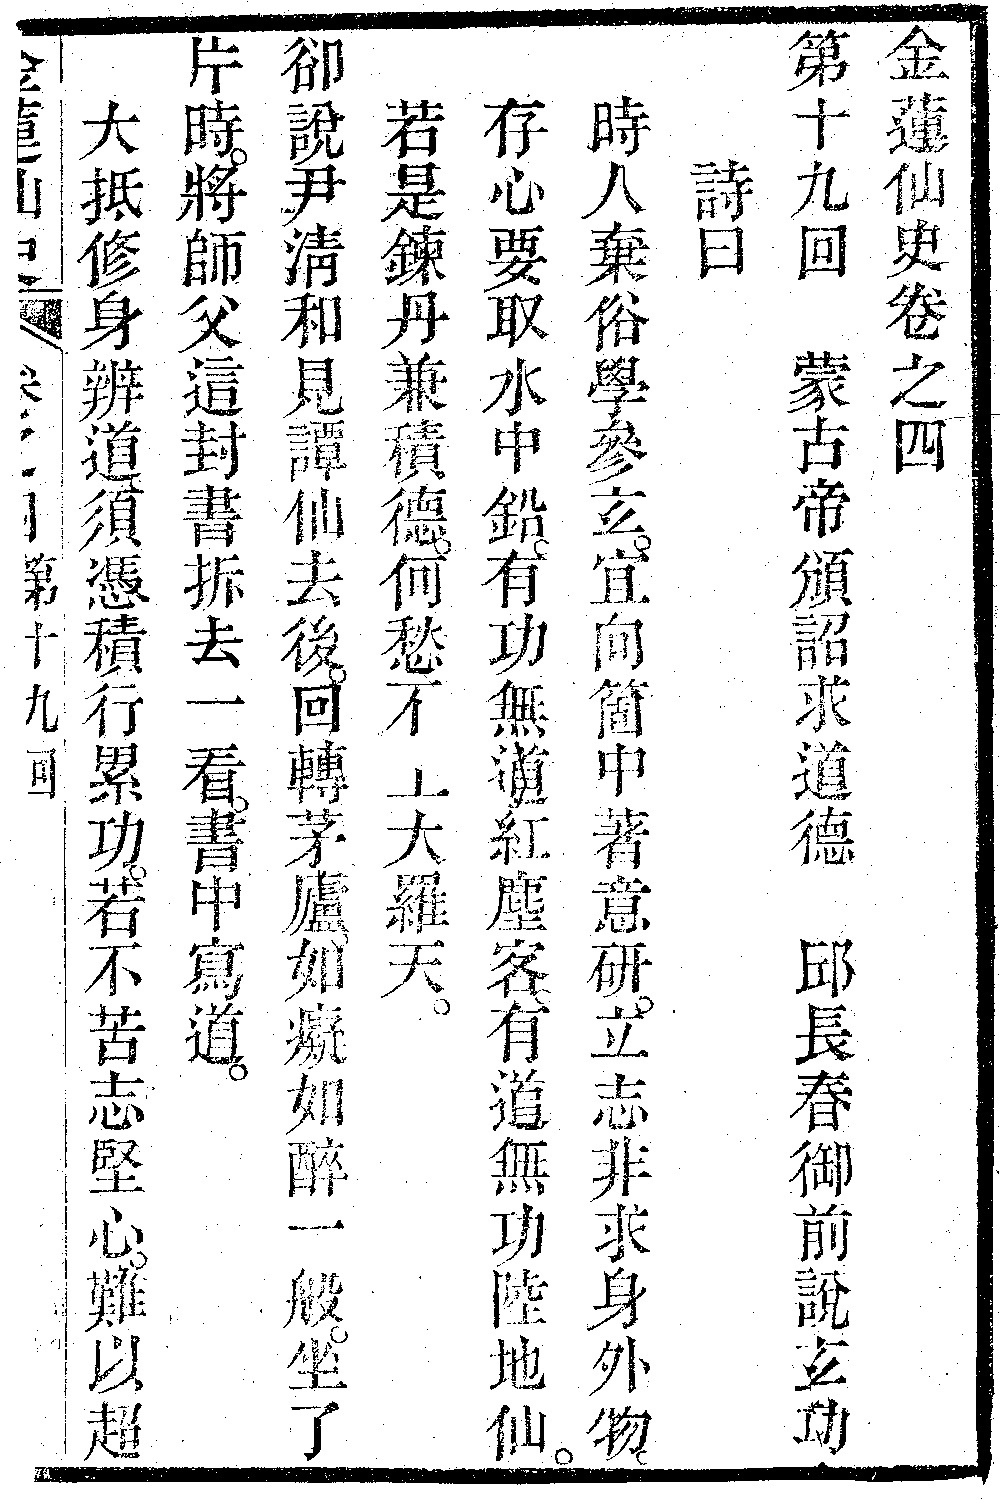 金蓮仙史卷之四
第十九回　蒙古帝頒詔求道德　邱長春御前說玄功
詩曰
時人棄俗學參玄。宜向箇中著意研。立志非求身外物。
存心要取水中鉛。有功無道紅塵客。有道無功陸地仙。
若是鍊丹兼積德。何愁不上大羅天。
卻說尹清和見譚仙去後。回轉茅廬。如癡如醉一般。坐了
片時。將師父這封書拆去一看。書中寫道。
大抵修身辨道須憑積行累功。若不苦志堅心。難以超
金蓮仙史　卷之四　第十九回